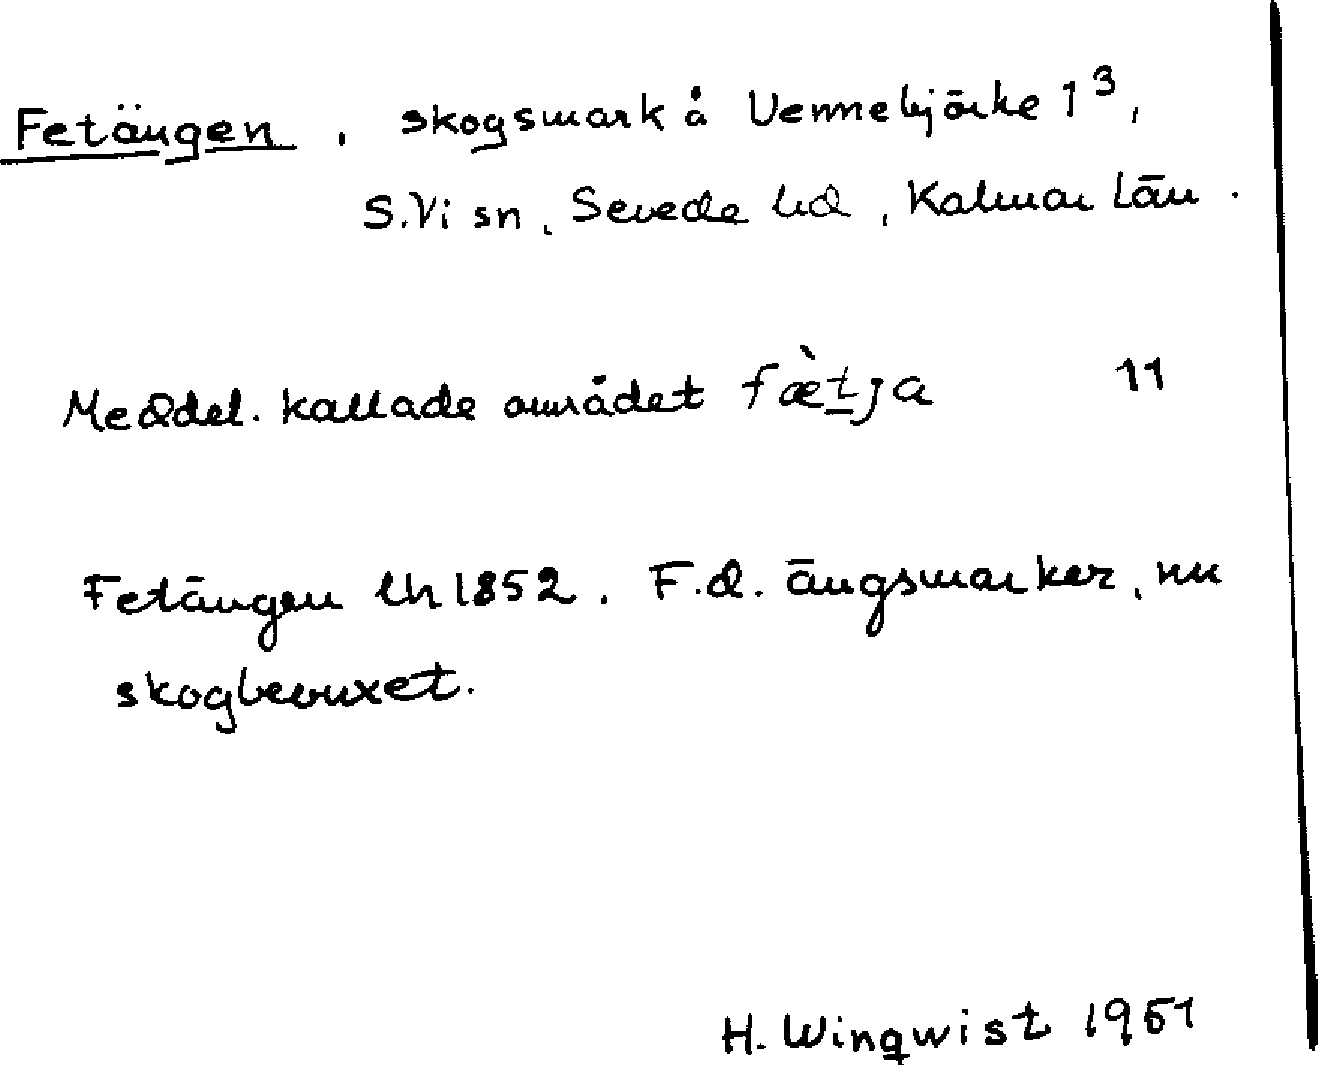 Fetängen, skogsmark å Vennebjörke 1³,
S.Vi sn, Sevede hd, Kalmar län.
Meddel. kallade området fæ̀tja 11
Fetängen lh 1852. F.d. ängsmarker, nu
skogbevuxet.
H. Winqwist 1961